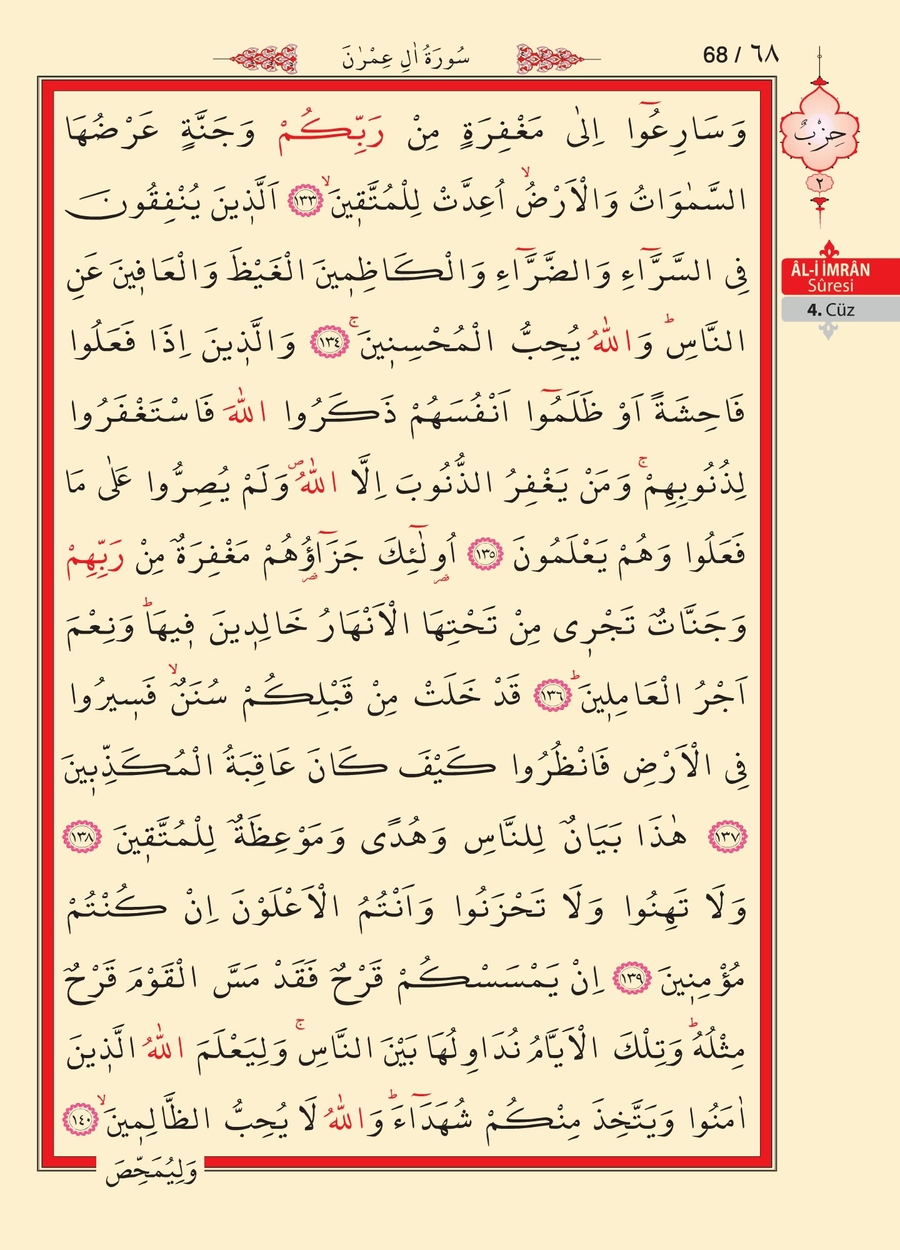 سُورَةُ اٰلِ عِمْرٰنَ
68 / ٦٨
حِزْبٌ
٢
ÂL-İ İMRÂN
Sûresi
4. Cüz
وَسَارِعُٓوا اِلٰى مَغْفِرَةٍ مِنْ رَبِّكُمْ وَجَنَّةٍ عَرْضُهَا
السَّمٰوَاتُ وَالْاَرْضُۙ اُعِدَّتْ لِلْمُتَّقٖينَۙ ﴿١٣٣﴾ اَلَّذٖينَ يُنْفِقُونَ
فِى السَّرَّٓاءِ وَالضَّرَّٓاءِ وَالْكَاظِمٖينَ الْغَيْظَ وَالْعَافٖينَ عَنِ
النَّاسِؕ وَاللّٰهُ يُحِبُّ الْمُحْسِنٖينَۚ ﴿١٣٤﴾ وَالَّذٖينَ اِذَا فَعَلُوا
فَاحِشَةً اَوْ ظَلَمُٓوا اَنْفُسَهُمْ ذَكَرُوا اللّٰهَ فَاسْتَغْفَرُوا
لِذُنُوبِهِمْۚ وَمَنْ يَغْفِرُ الذُّنُوبَ اِلَّا اللّٰهُࣕ وَلَمْ يُصِرُّوا عَلٰى مَا
فَعَلُوا وَهُمْ يَعْلَمُونَ ﴿١٣٥﴾ اُو۬لٰٓئِكَ جَزَٓاؤُ۬هُمْ مَغْفِرَةٌ مِنْ رَبِّهِمْ
وَجَنَّاتٌ تَجْرٖى مِنْ تَحْتِهَا الْاَنْهَارُ خَالِدٖينَ فٖيهَاؕ وَنِعْمَ
اَجْرُ الْعَامِلٖينَؕ ﴿١٣٦﴾ قَدْ خَلَتْ مِنْ قَبْلِكُمْ سُنَنٌۙ فَسٖيرُوا
فِى الْاَرْضِ فَانْظُرُوا كَيْفَ كَانَ عَاقِبَةُ الْمُكَذِّبٖينَ
﴿١٣٧﴾ هٰذَا بَيَانٌ لِلنَّاسِ وَهُدًى وَمَوْعِظَةٌ لِلْمُتَّقٖينَ ﴿١٣٨﴾
وَلَا تَهِنُوا وَلَا تَحْزَنُوا وَاَنْتُمُ الْاَعْلَوْنَ اِنْ كُنْتُمْ
مُؤْمِنٖينَ ﴿١٣٩﴾ اِنْ يَمْسَسْكُمْ قَرْحٌ فَقَدْ مَسَّ الْقَوْمَ قَرْحٌ
مِثْلُهُؕ وَتِلْكَ الْاَيَّامُ نُدَاوِلُهَا بَيْنَ النَّاسِۚ وَلِيَعْلَمَ اللّٰهُ الَّذٖينَ
اٰمَنُوا وَيَتَّخِذَ مِنْكُمْ شُهَدَٓاءَؕ وَاللّٰهُ لَا يُحِبُّ الظَّالِمٖينَۙ ﴿١٤٠﴾
وَلِيُمَحِّصَ